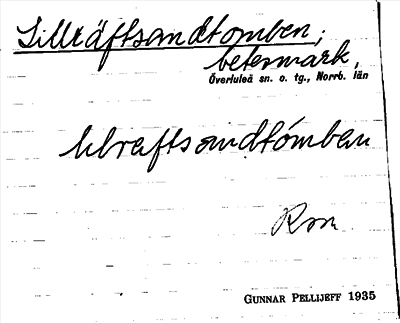 Lillkräftsandtomben;
betesmark,
Överluleå sn. o. tg., Norrb. län
lilkraftsandtómben
GUNNAR PELLIJEFF 1935